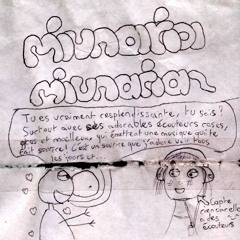 Miunarian
Miunarian
Tu es vraiment resplendissante, tu sais?
Surtout avec ses adorables écouteurs roses,
gros et moelleux, qui émettent une musique qui te
fait sourire! C'est un sourire que j'adore voir tous
les jours et...
Capte
a des
écouteurs